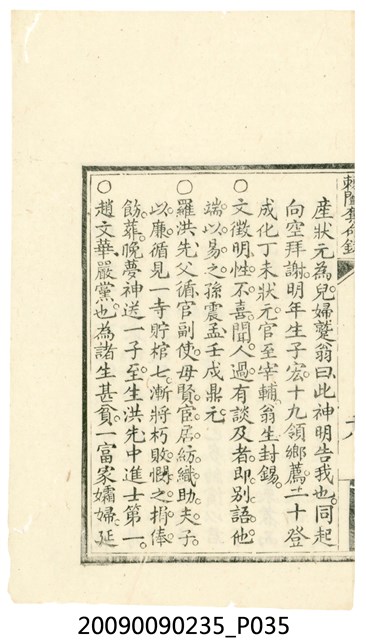 產狀元為兒婦蹵翁曰此神明告我也同起
向空拜謝明年生子宏十九領鄉薦二十登
成化丁未狀元官至宰輔翁生封錫
○文徵明性不喜聞人過有談及者即別語他
端以易之孫震孟壬戌鼎元
○羅洪先父循官副使母賢宦居紡織助夫子
以廉循見一寺貯棺七漸將朽敗憫之捐俸
飭葬晚夢神送一子至生洪先中進士第一
○趙文華嚴黨也為諸生甚貧一富家孀婦延
20090090235_P035